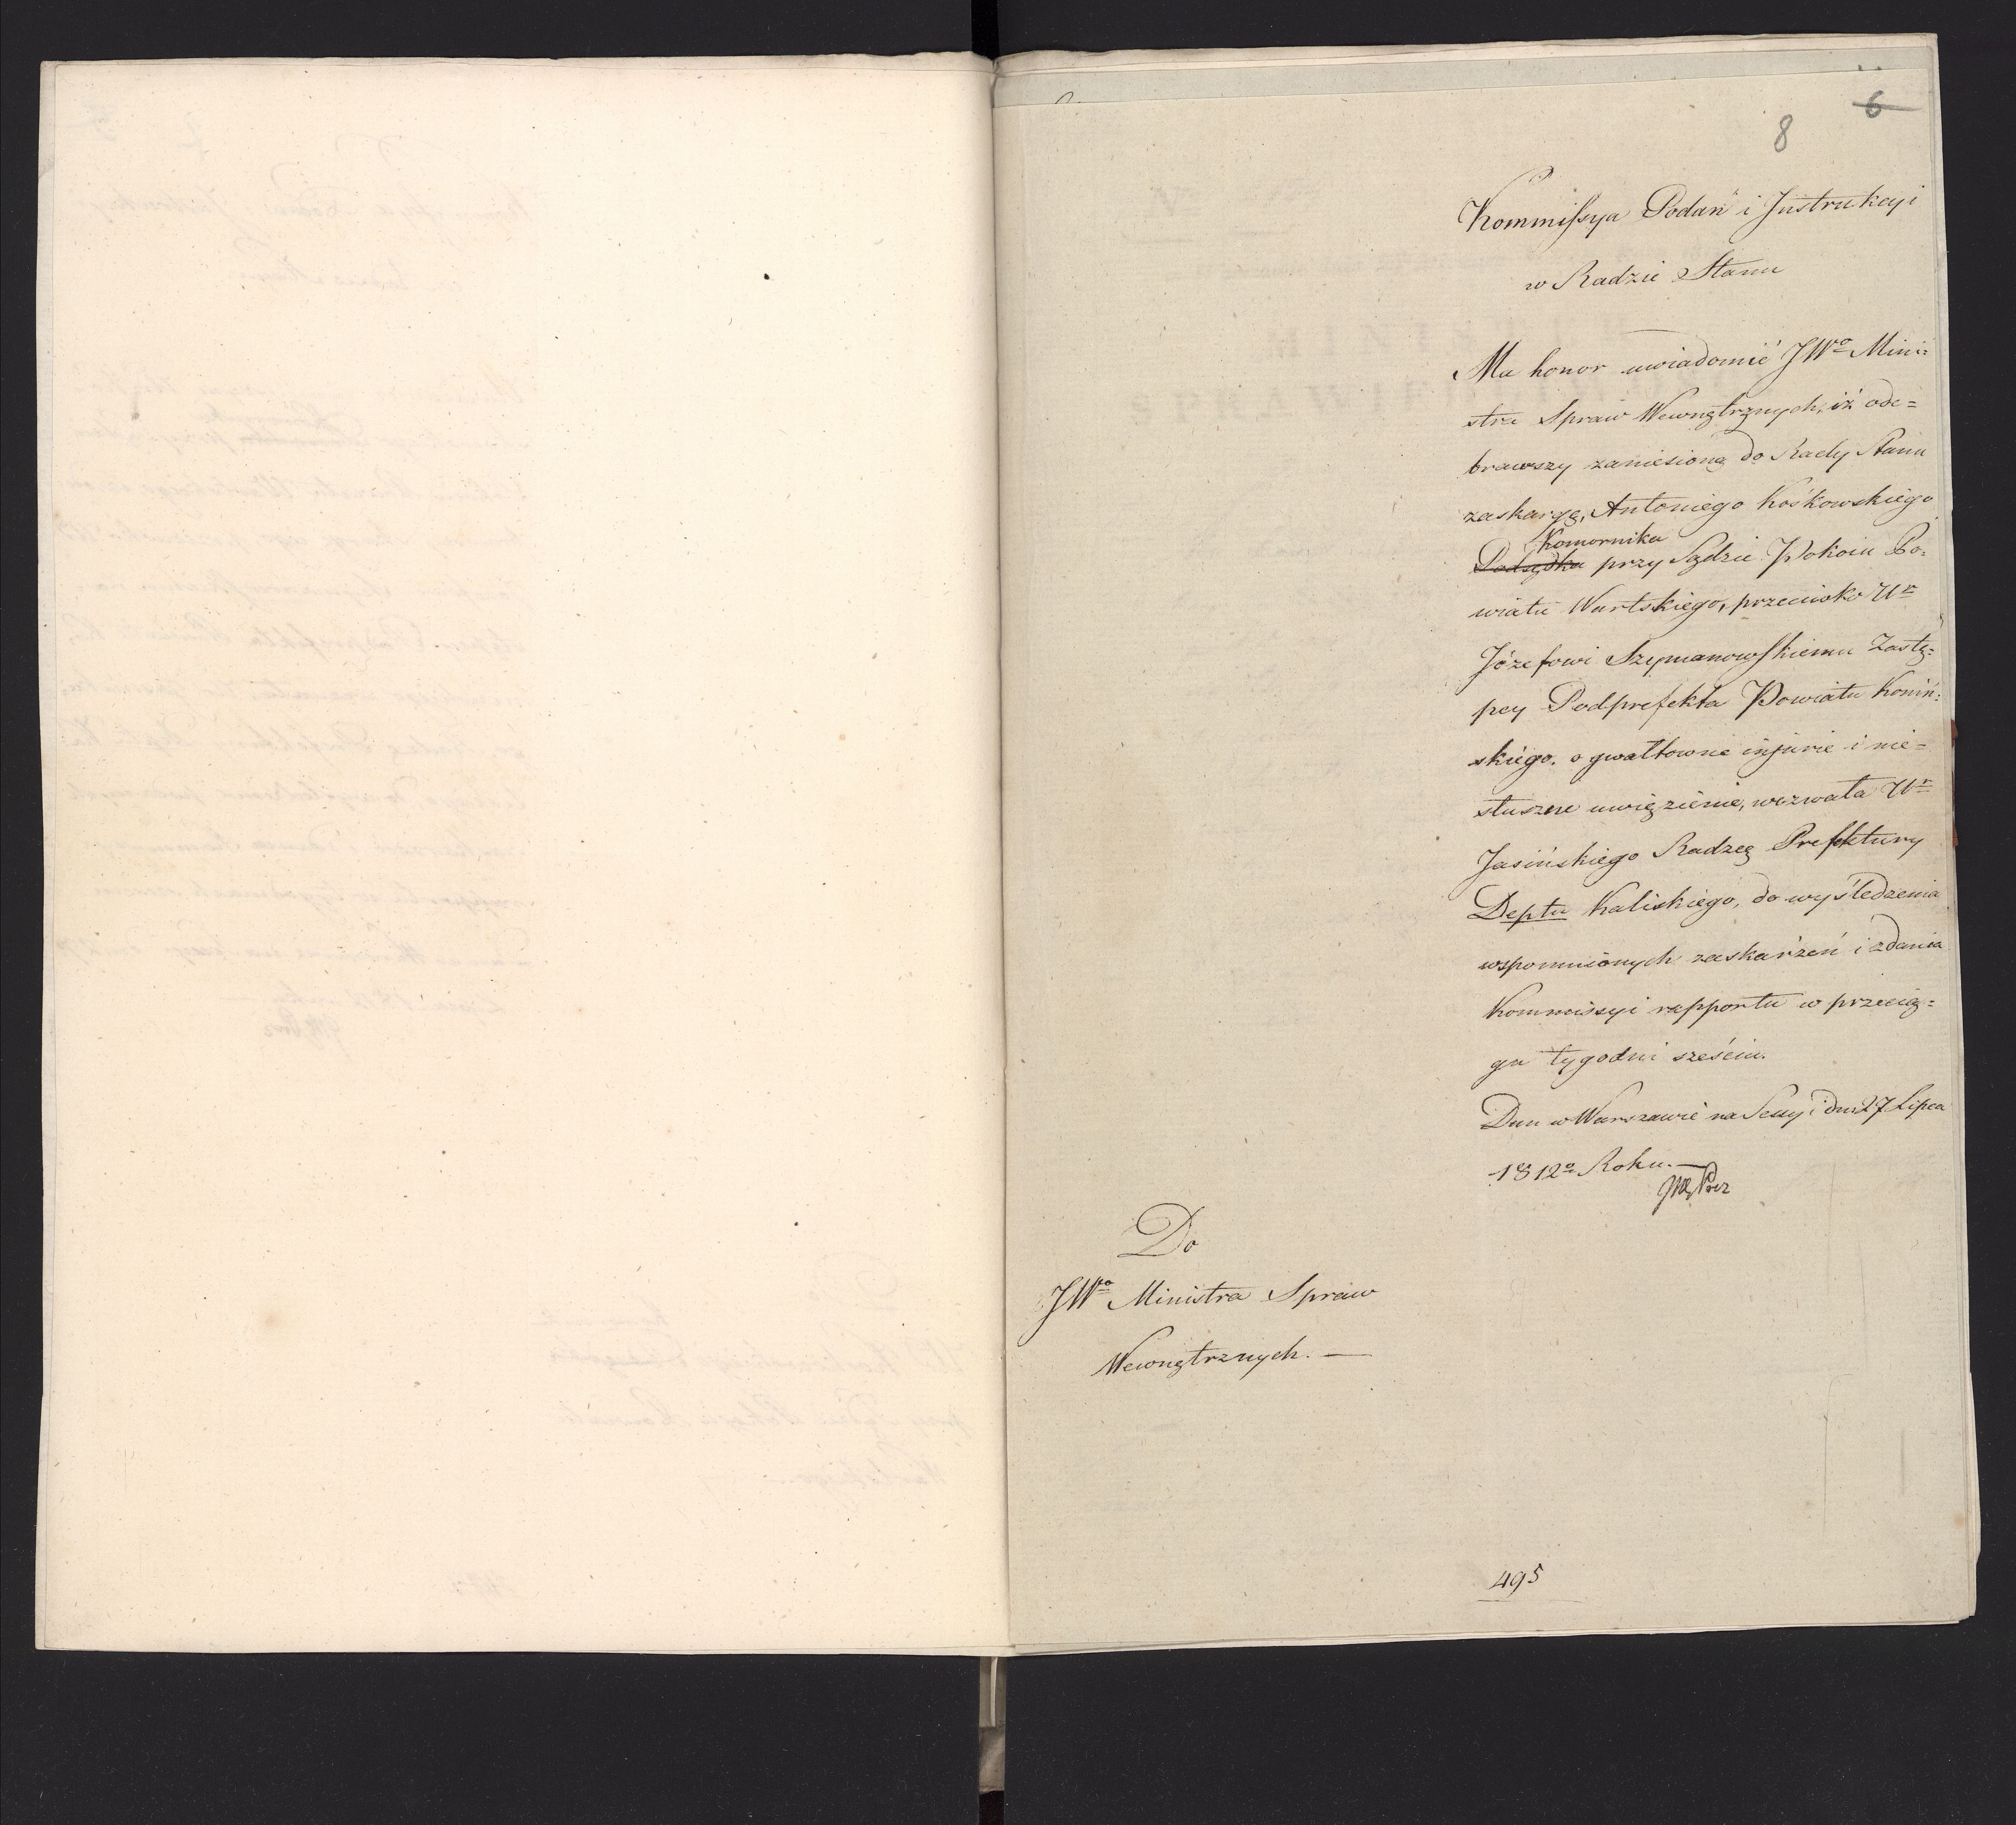 6
8
Kommissya Podań i Instrukcyi
w Radzie Stanu
Ma honor uwiadomić JWo Mini=
stra Spraw Wewnętrznych, iż ode=
brawszy zaniesioną do Rady Stanu
zaskargę, Antoniego Kośkowskiego
Komornika
Podsędka przy Sądzie Pokoiu Po=
wiatu Wartskiego, przeciwko Ur
Józefowi Szymanowskiemu Zastę=
pcy Podprefekta Powiatu Koniń=
skiego. o gwałtowne injurie i nie=
słuszne uwięzienie, wezwała Ur
Jasińskiego Radzcę Prefektury
Deptu Kaliskiego, do wyśledzenia
wspomnionych zaskarżeń i zdania
Kommissyi rapportu w przecią=
gu tygodni sześciu.
Dan w Warszawie na Sessyi dnia 27 Lipca
1812o Roku. —
Do
JWo Ministra Spraw
Wewnętrznych. —
495